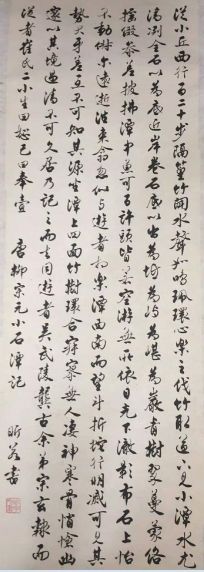 從小丘西行百二十步隔篁竹聞水聲如鳴珮環心樂之伐竹取道下見小潭水尤
清冽全石以為底近岸卷石底以出為坻為嶼為嵁為巖青樹翠蔓蒙絡
搖綴參差披拂潭中魚可百許頭皆若空遊無所依日光下澈影布石上怡
不動俶尔遠逝往來翕忽似與遊者相樂潭西南而望斗折蛇行明滅可見其
勢犬牙差互不可知其源坐潭上四面竹樹環合寂寥無人淒神寒骨悄愴幽
邃以其境過清不可久居乃記之而去同遊者吳武陵龔古余弟宗玄隸而
從者崔氏二小生曰恕己曰奉壹
唐柳宗元小石潭記
書